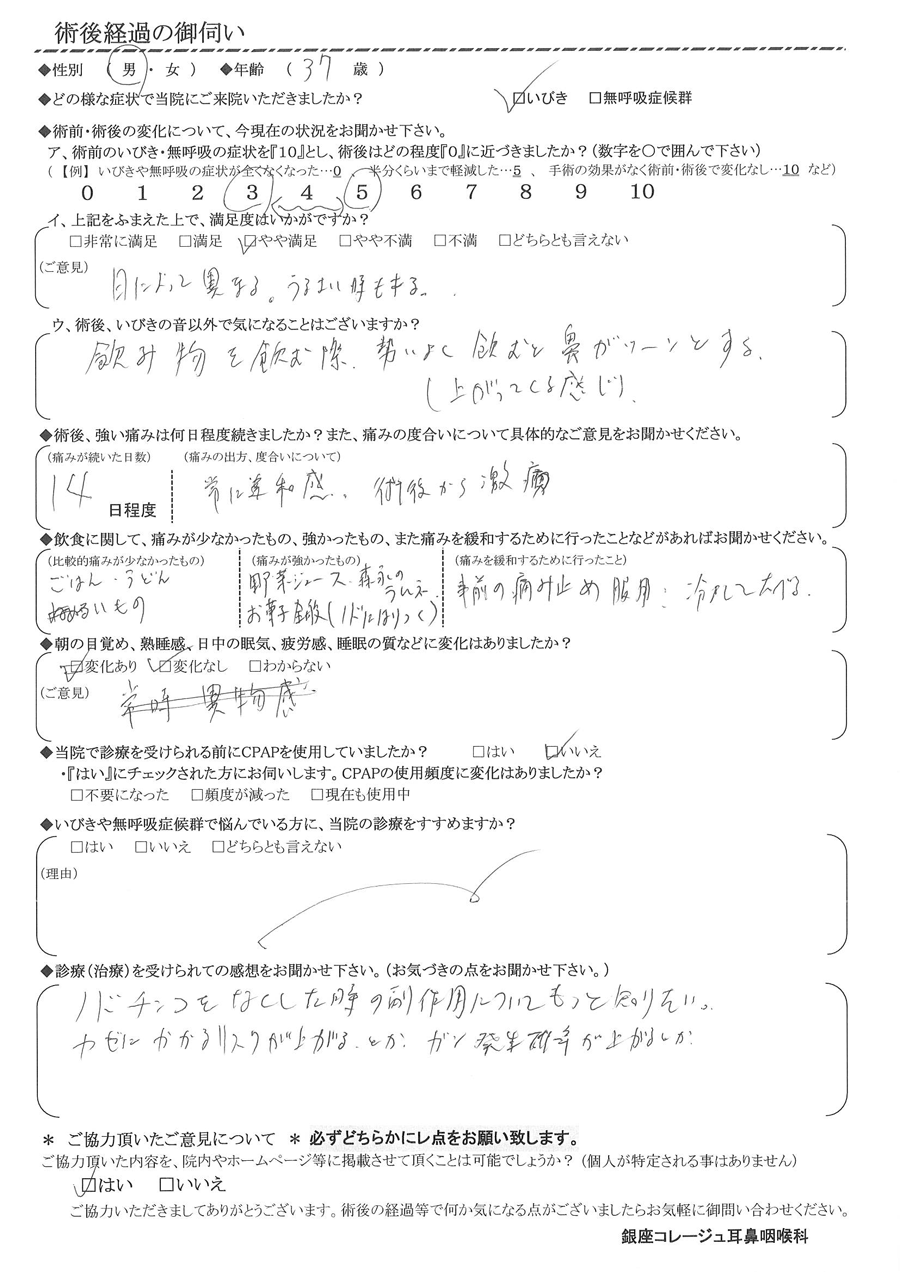 術後経過の御伺い
◆性別 （ 男 ・ 女 ） ◆年齢 （ 37 歳 ）
◆どの様な症状で当院にご来院いただきましたか？ ☑いびき □無呼吸症候群
◆術前・術後の変化について、今現在の状況をお聞かせ下さい。
ア、術前のいびき・無呼吸の症状を『10』とし、術後はどの程度『0』に近づきましたか？（数字を〇で囲んで下さい）
（【例】 いびきや無呼吸の症状が全くなくなった…0 、半分くらいまで軽減した…5 、 手術の効果がなく術前・術後で変化なし…10 など）
0 1 2 3 4 5 6 7 8 9 10
イ、上記をふまえた上で、満足度はいかがですか？
□非常に満足 □満足 ☑やや満足 □やや不満 □不満 □どちらとも言えない
（ご意見）
日によって異なる。うるさい時もある。
ウ、術後、いびきの音以外で気になることはございますか？
飲み物を飲む際、勢いよく飲むと鼻がツーンとする。
（上がってくる感じ）。
◆術後、強い痛みは何日程度続きましたか？また、痛みの度合いについて具体的なご意見をお聞かせください。
（痛みが続いた日数） （痛みの出方、度合いについて）
14 日程度 常に違和感、術後から激痛
◆飲食に関して、痛みが少なかったもの、強かったもの、また痛みを緩和するために行ったことなどがあればお聞かせください。
（比較的痛みが少なかったもの） （痛みが強かったもの） （痛みを緩和するために行ったこと）
ごはん・うどん 野菜ジュース、森永のラムネ 事前の痛み止め服用、冷まして食べる。
るいもの お菓子全般（ノドにはりつく）
◆朝の目覚め、熟睡感、日中の眠気、疲労感、睡眠の質などに変化はありましたか？
☑変化あり ☑変化なし □わからない
（ご意見）
常時異物感
◆当院で診療を受けられる前にCPAPを使用していましたか？ □はい ☑いいえ
・『はい』にチェックされた方にお伺いします。CPAPの使用頻度に変化はありましたか？
□不要になった □頻度が減った □現在も使用中
◆いびきや無呼吸症候群で悩んでいる方に、当院の診療をすすめますか？
□はい □いいえ □どちらとも言えない
（理由）
◆診療（治療）を受けられての感想をお聞かせ下さい。（お気づきの点をお聞かせ下さい。）
ノドチンコをなくした時の副作用についてもっと知りたい。
カゼにかかるリスクが上がるとか ガン発生確率が上がるとか
＊ ご協力頂いたご意見について ＊ 必ずどちらかにレ点をお願い致します。
ご協力頂いた内容を、院内やホームページ等に掲載させて頂くことは可能でしょうか？（個人が特定される事はありません）
☑はい □いいえ
ご協力いただきましてありがとうございます。術後の経過等で何か気になる点がございましたらお気軽に御問い合わせください。
銀座コレージュ耳鼻咽喉科